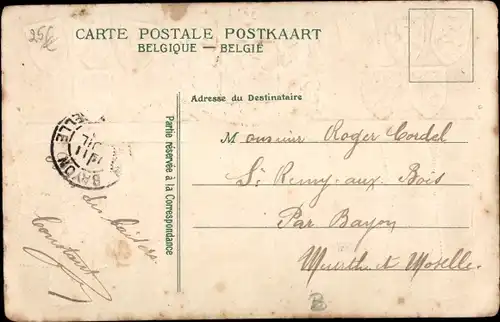 CARTE POSTALE POSTKAART
BELGIQUE — BELGIË
Adresse du Destinataire
Monsieur Roger Cordel
St Remy-aux-Bois
Par Bayon
Meurthe et Moselle.
Partie réservée à la Correspondance
BAYON
des baisers
Constant
B